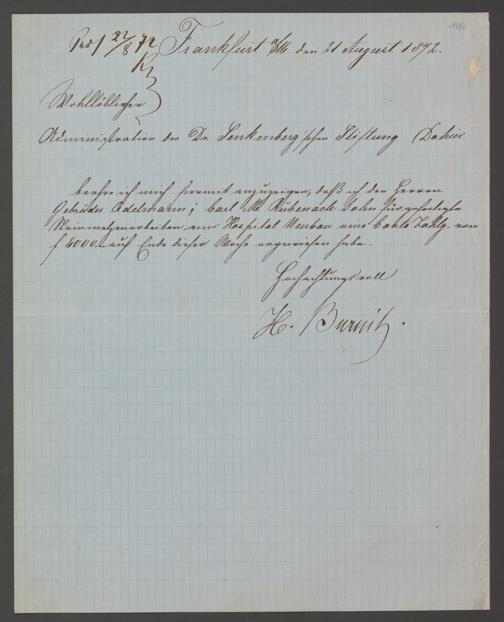 116
Präs 22/8 72
Frankfurt a/M den 21 August 1872.
Wohllöblicher
Administration der Dr. Senkenberg'schen Stiftung Dahier
beehre ich mich hiermit anzuzeigen, daß ich den Herren
Gebrüder Adelmann; Carl M Rübenach Sohn für gelieferte
Steinmetzarbeiten am Hospital Neubau eine Conto Zahlg. von
f 4000.- auf Ende dieser Woche angewiesen habe.
Hochachtungsvoll
H. Burnitz.